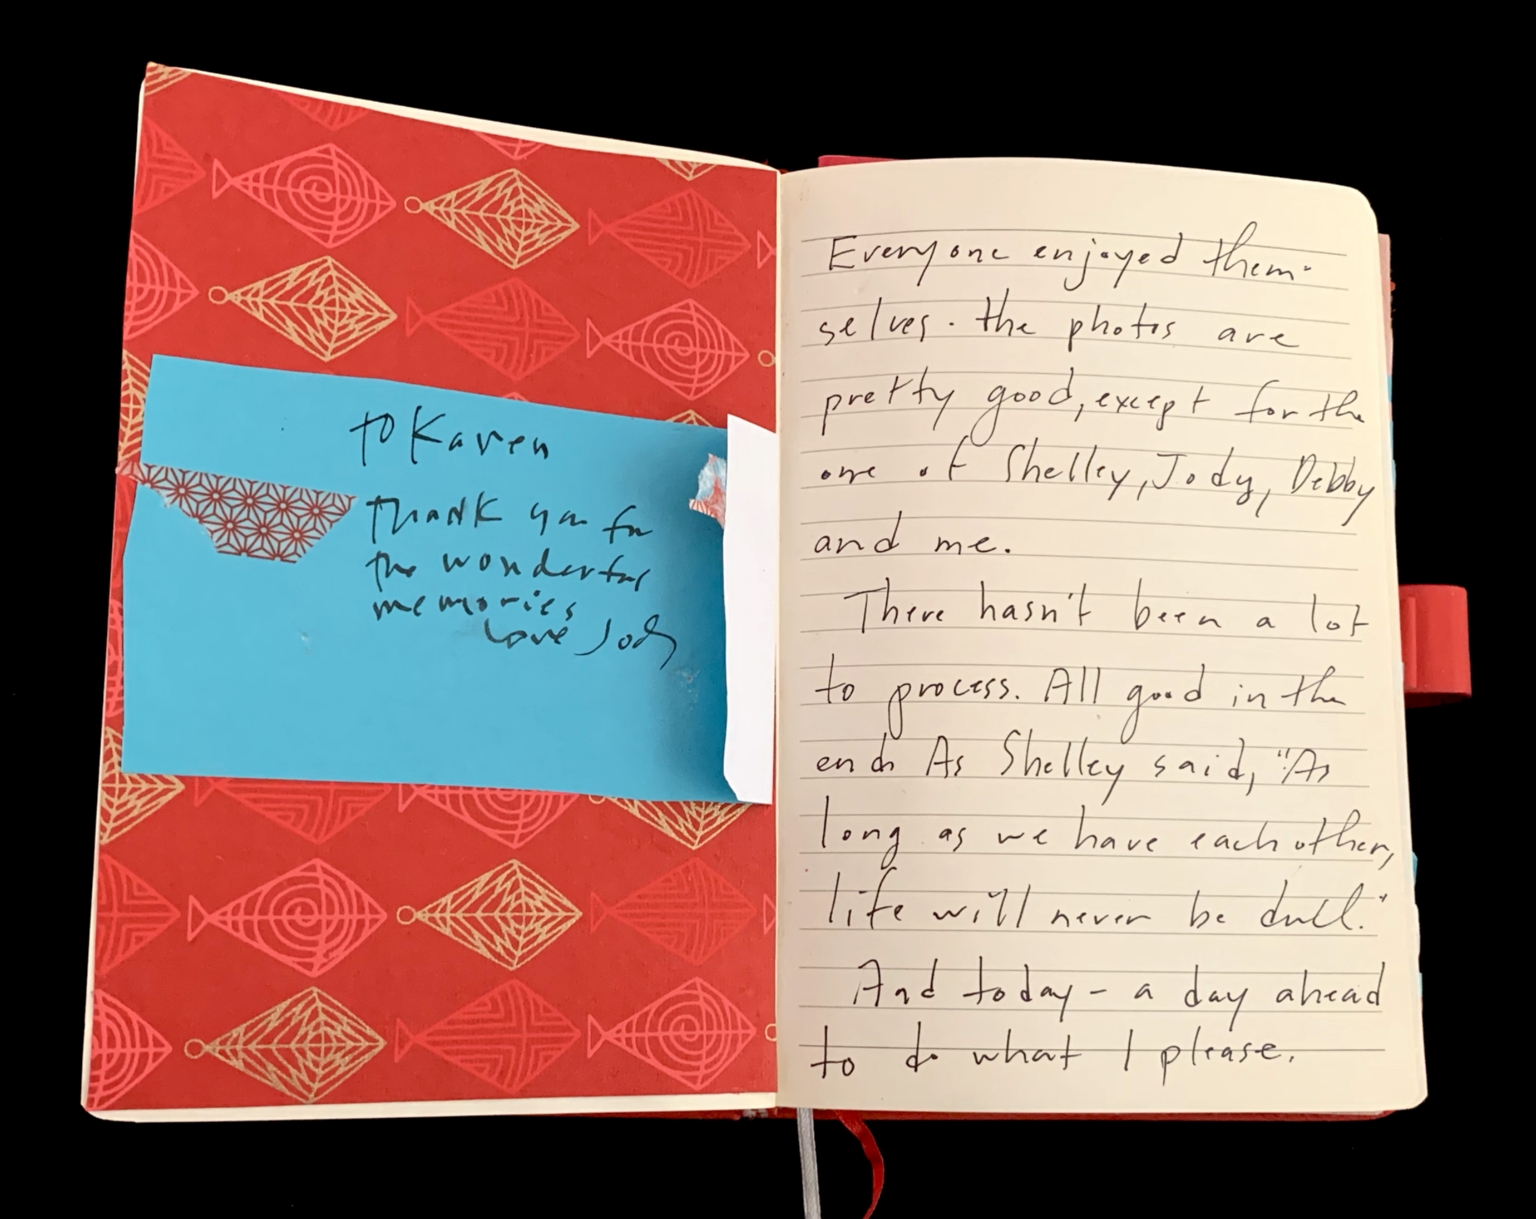 to Karen
thank you for
the wonderful
memories
Love Jody
Everyone enjoyed them-
selves. The photos are
pretty good, except for the
one of Shelley, Jody, Debby
and me.
There hasn't been a lot
to process. All good in the
end. As Shelley said, "As
long as we have each other,
life will never be dull."
And today - a day ahead
to do what I please.